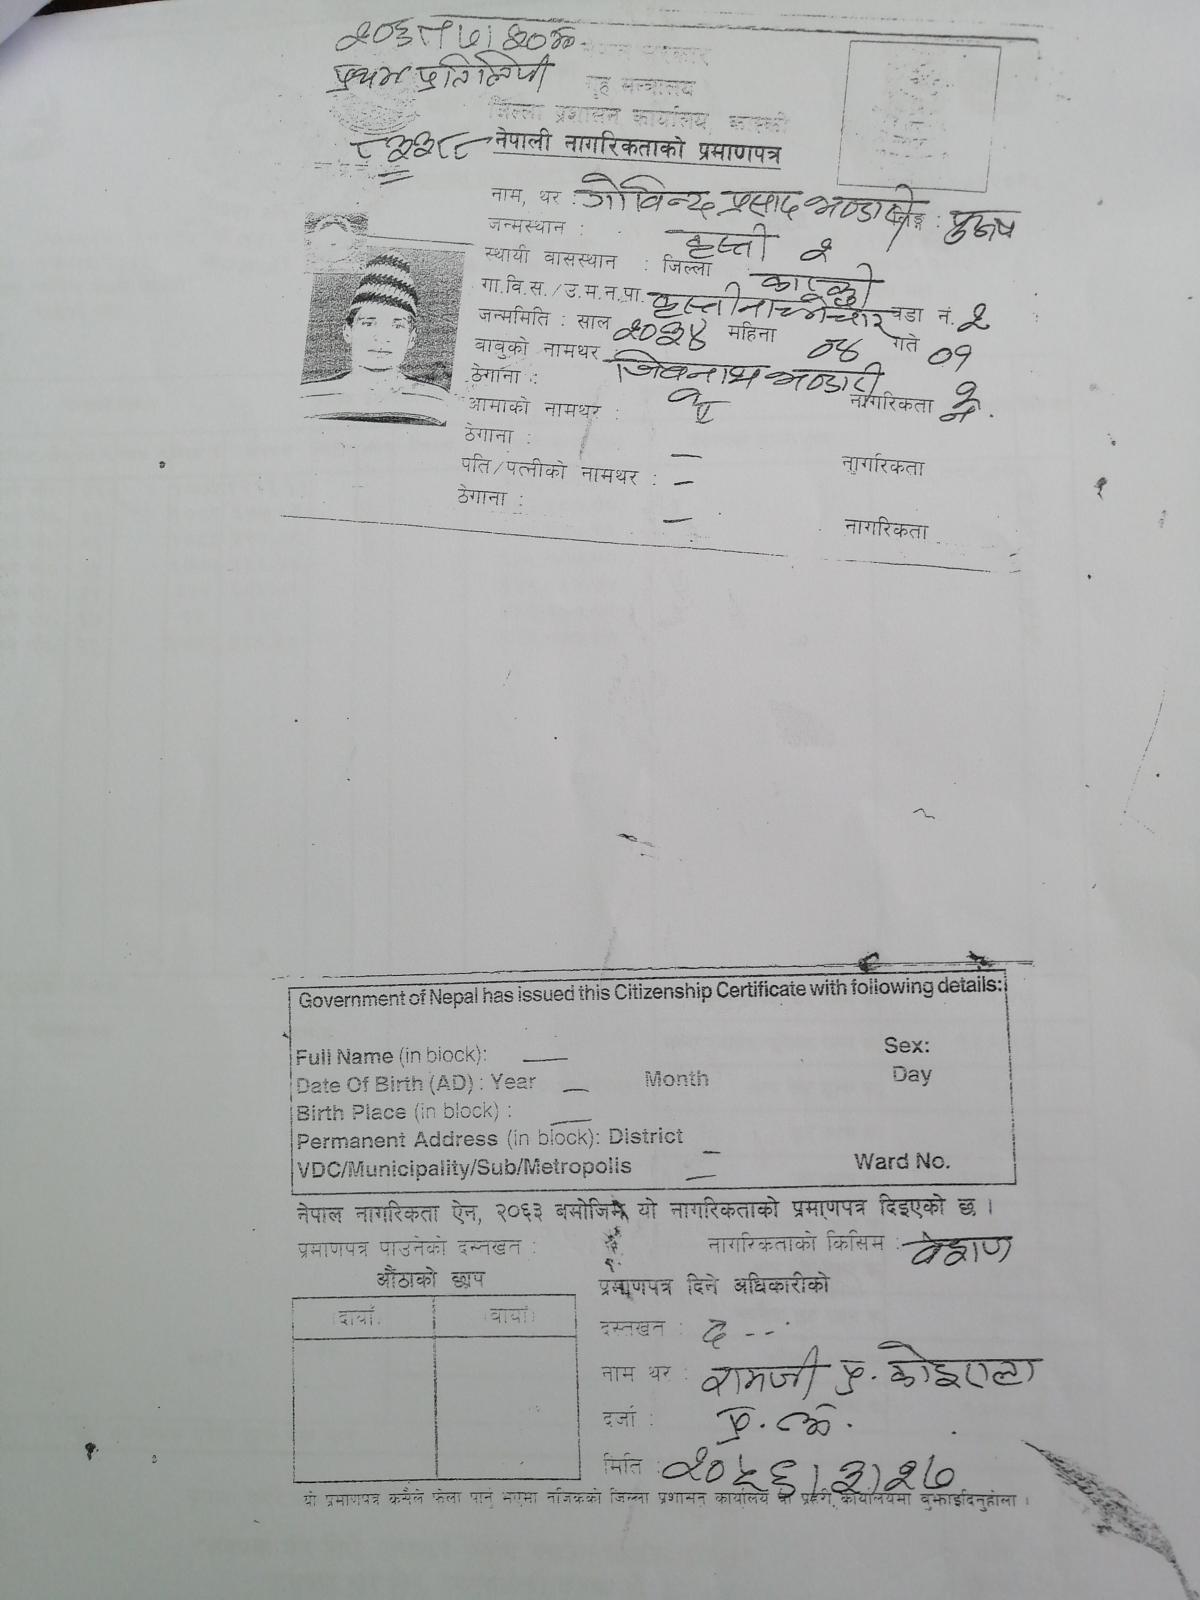 प्रथम प्रतिलिपी
नेपाल सरकार
गृह मन्त्रालय
जिल्ला प्रशासन कार्यालय, कास्की
नेपाली नागरिकताको प्रमाणपत्र
नाम, थर : गोविन्द प्रसाद भण्डारी लिङ्ग : पुरुष
जन्मस्थान : कृस्ती २
स्थायी वासस्थान : जिल्ला कास्की
गा.वि.स./उ.म.न.पा. कृस्तीनाच्नेचौर वडा नं. २
जन्ममिति : साल २०३४ महिना ०४ गते ०१
बाबुको नामथर जिवनाथ भण्डारी
ठेगाना : ऐ नागरिकता
आमाको नामथर :
ठेगाना : –
नागरिकता
पति/पत्नीको नामथर : –
ठेगाना : –
नागरिकता
Government of Nepal has issued this Citizenship Certificate with following details:
Full Name (in block): — Sex:
Date Of Birth (AD) : Year – Month Day
Birth Place (in block) : —
Permanent Address (in block): District –
VDC/Municipality/Sub/Metropolis — Ward No.
नेपाल नागरिकता ऐन, २०६३ बमोजिम यो नागरिकताको प्रमाणपत्र दिइएको छ ।
प्रमाणपत्र पाउनेको दस्तखत :
नागरिकताको किसिम : वंशज
औंठाको छाप
दायाँ बायाँ
प्रमाणपत्र दिने अधिकारीको
दस्तखत : द --·
नाम थर : रामजी प्र. कोइराला
दर्जा : प्र. अ.
मिति : २०५६।३।२७
यो प्रमाणपत्र कसैले फेला पारेमा नजिकको जिल्ला प्रशासन कार्यालय वा प्रहरी कार्यालयमा बुझाईदिनुहोला ।